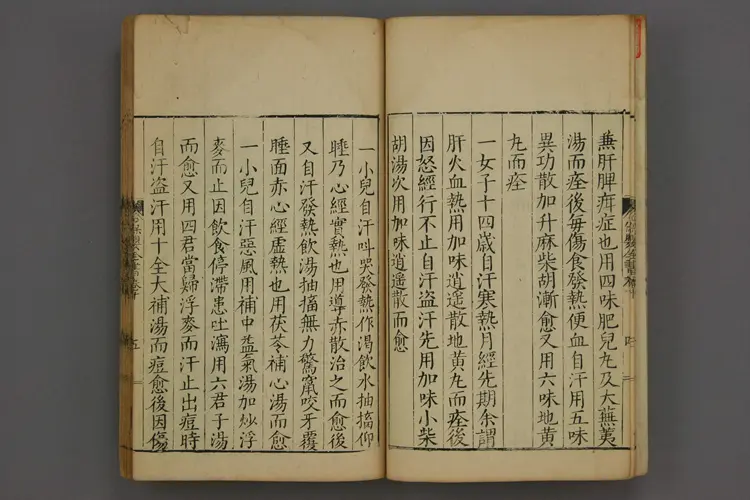 蕪肝脾疳症也用四味肥兒丸及大蕪荑
湯而痊後每傷食發熱便血自汗用五味
異功散加升麻柴胡漸愈又用六味地黃
丸而痊
一女子十四歲自汗寒熱月經先期余謂
肝火血熱用加味逍遥散地黃丸而痊後
因怒經行不止自汗盗汗先用加味小柴
胡湯次用加味逍遥散而愈
一小兒自汗呌哭發熱作渴飲水抽搐仰
睡乃心經實熱也用導赤散治之而愈後
又自汗發熱飲湯抽搐無力驚竄咬牙覆
睡面赤心經虛熱也用茯苓補心湯而愈
一小兒自汗惡風用補中益氣湯加炒浮
麥而止因飲食停滯患吐瀉用六君子湯
而愈又用四君當歸浮麥而汗止出痘時
自汗盗汗用十全大補湯而痘愈後因傷